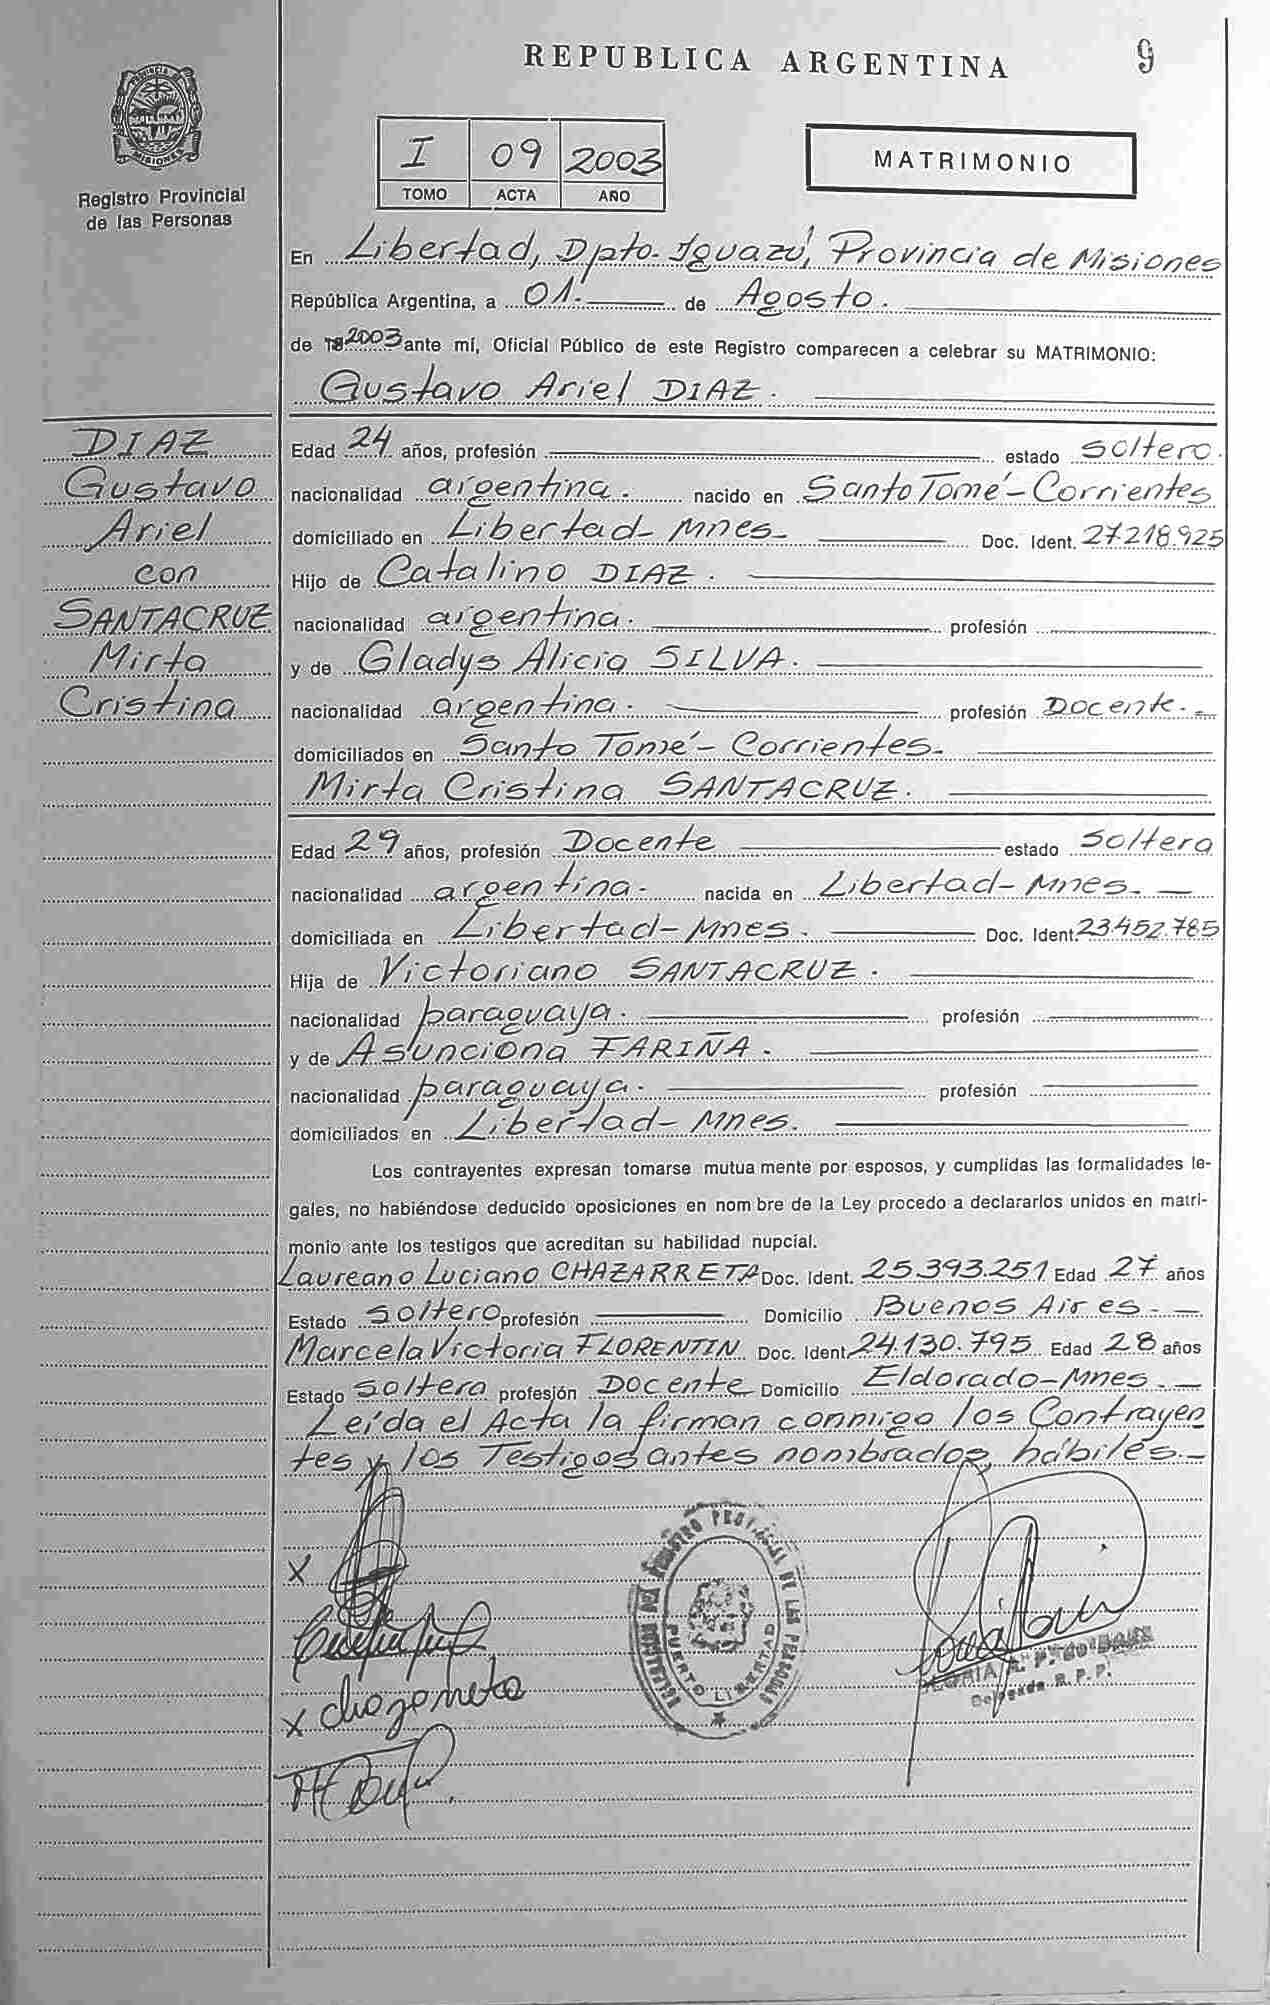 REPUBLICA ARGENTINA
9
PROVINCIA DE
MISIONES
Registro Provincial
de las Personas
I 09 2003
TOMO ACTA AÑO
MATRIMONIO
En Libertad, Dpto. Iguazú, Provincia de Misiones
República Argentina, a 01.- de Agosto.
de 2003 ante mí, Oficial Público de este Registro comparecen a celebrar su MATRIMONIO:
Gustavo Ariel DIAZ.
DIAZ
Gustavo
Ariel
con
SANTACRUZ
Mirta
Cristina
Edad 24 años, profesión estado soltero.
nacionalidad argentina. nacido en Santo Tomé - Corrientes
domiciliado en Libertad - Mnes. Doc. Ident. 27218.925
Hijo de Catalino DIAZ.
nacionalidad argentina. profesión
y de Gladys Alicia SILVA.
nacionalidad argentina. profesión Docente.-
domiciliados en Santo Tomé - Corrientes.
Mirta Cristina SANTACRUZ.
Edad 29 años, profesión Docente estado soltera
nacionalidad argentina. nacida en Libertad - Mnes. -
domiciliada en Libertad - Mnes. Doc. Ident. 23.452.785
Hija de Victoriano SANTACRUZ.
nacionalidad paraguaya. profesión
y de Asunciona FARIÑA.
nacionalidad paraguaya. profesión
domiciliados en Libertad - Mnes.
Los contrayentes expresan tomarse mutua mente por esposos, y cumplidas las formalidades le-
gales, no habiéndose deducido oposiciones en nom bre de la Ley procedo a declararlos unidos en matri-
monio ante los testigos que acreditan su habilidad nupcial.
Laureano Luciano CHAZARRETA Doc. Ident. 25.393.251 Edad 27 años
Estado soltero profesión Domicilio Buenos Aires. -
Marcela Victoria FLORENTIN Doc. Ident. 24.130.795 Edad 28 años
Estado soltera profesión Docente Domicilio Eldorado - Mnes. -
Leída el Acta la firman conmigo los Contrayen
tes y los Testigos antes nombrados, hábiles. -
X
X chazarreta
REGISTRO PROVINCIAL DE LAS PERSONAS
PUERTO LIBERTAD
Delegada R. P. P.